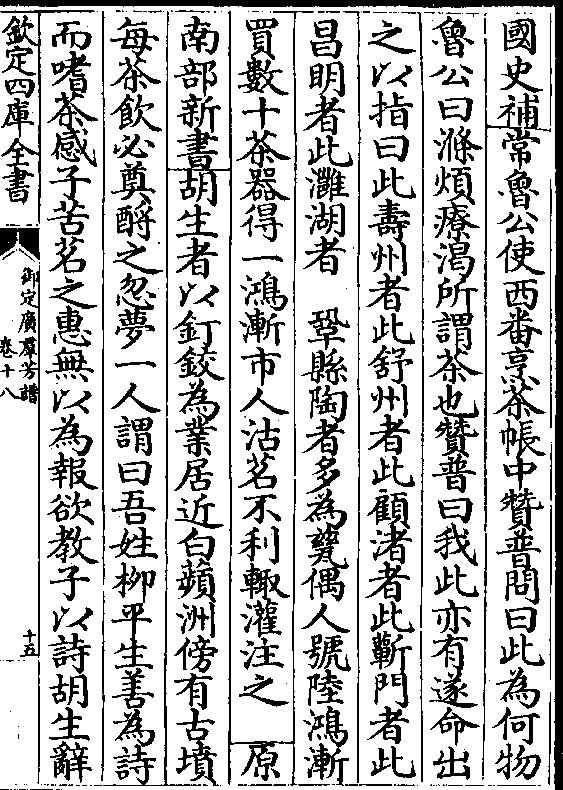 國史補常魯公使西番烹茶帳中贊普問曰此為何物
魯公曰滌煩療渴所謂茶也贊普曰我此亦有遂命出
之以指曰此壽州者此舒州者此顧渚者此蘄門者此
昌明者此灉湖者 鞏縣陶者多為甆偶人號陸鴻漸
買數十茶器得一鴻漸市人沽茗不利輙灌注之 原
南部新書胡生者以釘鉸為業居近白蘋洲傍有古墳
每茶飲必奠酹之忽夢一人謂曰吾姓柳平生善為詩
而嗜茶感子苦茗之惠無以為報欲教子以詩胡生辭
欽定四庫全書
御定廣羣芳譜
卷十八
十五